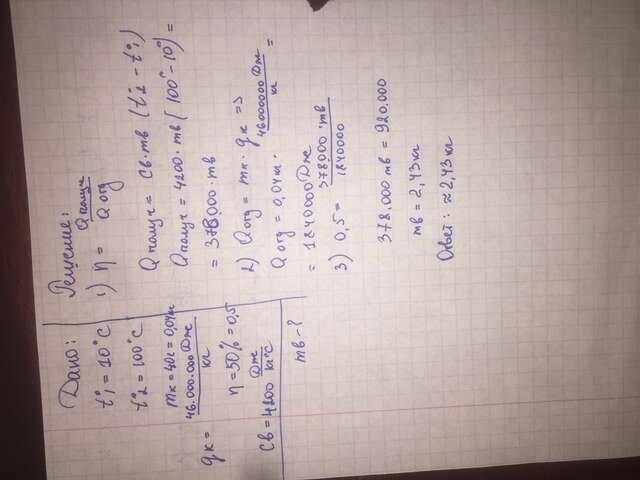 Дано:
t°1 = 10°C
t°2 = 100°C
mк = 40г = 0,04кг
qк = 46.000.000 Дж/кг
η = 50% = 0,5
cв = 4200 Дж/кг°C
mв - ?
Решение:
1) η = Qполуч/Qотд
Qполуч = cв·mв (t°2 - t°1)
Qполуч = 4200·mв (100° - 10°) =
= 378000·mв
2) Qотд = mк·qк =>
Qотд = 0,04кг · 46000000 Дж/кг =
= 1840000 Дж
3) 0,5 = 378000·mв/1840000
378.000 mв = 920.000
mв = 2,43кг
Ответ: ≈ 2,43кг